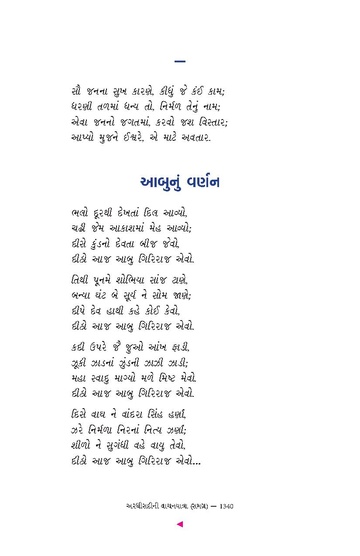 સૌ જનના સુખ કારણે, કીધું જે કંઈ કામ;
ધરણી તળમાં ધન્ય તો, નિર્મળ તેનું નામ;
એવા જનનો જગતમાં, કરવો જશ વિસ્તાર;
આપ્યો મુજને ઈશ્વરે, એ માટે અવતાર.
આબુનું વર્ણન
ભલો દૂરથી દેખતાં દિલ આવ્યો,
ચઢી જેમ આકાશમાં મેહ આવ્યો;
દીસે કુંડનો દેવતા બીજ જેવો,
દીઠો આજ આબુ ગિરિરાજ એવો.
તિથી પૂનમે શોભિયા સાંજ ટાણે,
બન્યા ઘંટ બે સૂર્ય ને સોમ જાણે;
દીપે દેવ હાથી કહે કોઈ કેવો,
દીઠો આજ આબુ ગિરિરાજ એવો.
કદી ઉપરે જૈ જુઓ આંખ ફાડી,
ઝૂકી ઝાડનાં ઝુંડની ઝાઝી ઝાડી;
મહા સ્વાદુ માગ્યો મળે મિષ્ટ મેવો,
દીઠો આજ આબુ ગિરિરાજ એવો.
દિસે વાઘ ને વાંદરા સિંહ હર્ણા,
ઝરે નિર્મળા નિરનાં નિત્ય ઝર્ણા;
શીળો ને સુગંધી વહે વાયુ તેવો,
દીઠો આજ આબુ ગિરિરાજ એવો...
અરધી સદીની વાચનયાત્રા (સમગ્ર) — 1340